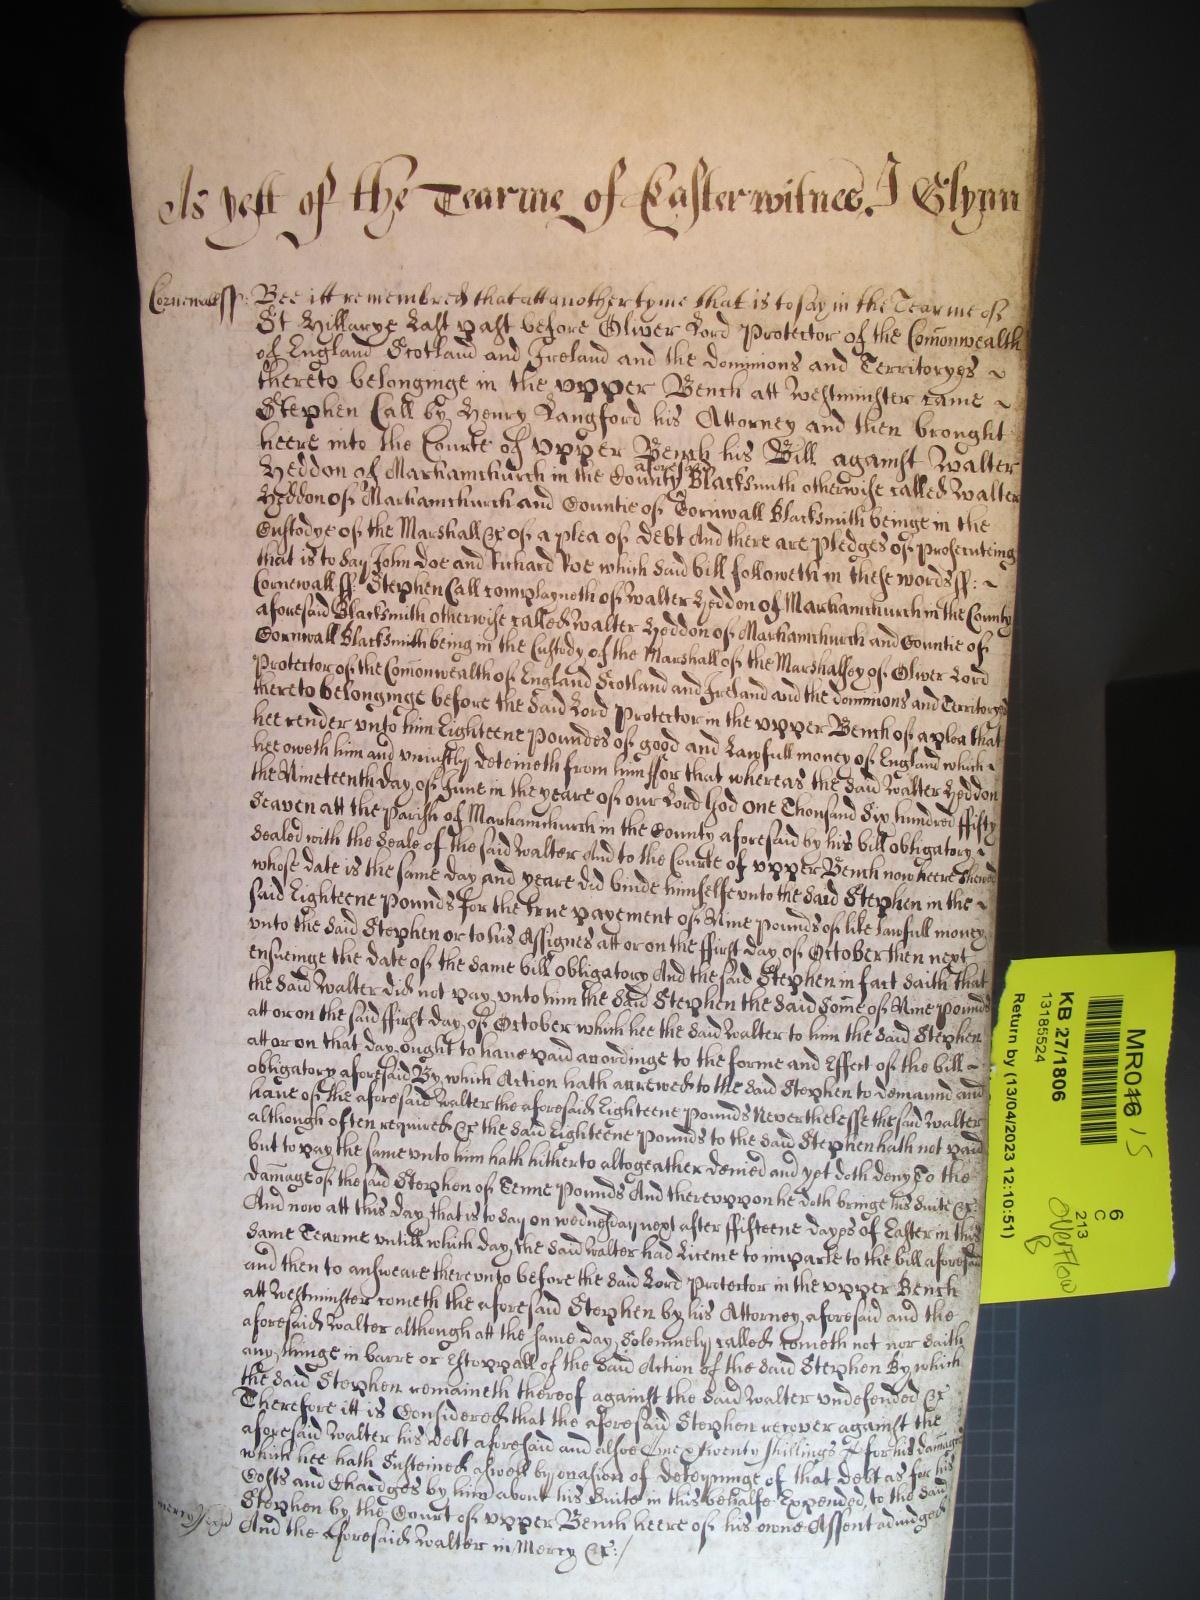 As yett of the Tearme of Easter witnes J Glynn
Cornewall ss: Bee itt remembred that att another tyme that is to say in the Tearme of
St Hillarye Last past before Oliver Lord Protector of the Comonwealth
of England Scotland and Ireland and the dominions and Territoryes
thereto belonginge in the upper Bench att Westminster came
Stephen Call by Henry Langford his Attorney and then brought
heere into the Courte of upper Bench his Bill against Walter
Heddon of Marhamchurch in the County aforesaid Blacksmith otherwise called Walter
Heddon of Marhamchurch and Countie of Cornwall Blacksmith beinge in the
Custodye of the Marshall &c of a plea of debt And there are pledges of prosecuteing
that is to say John Doe and Richard Roe which said bill followeth in these words ss:
Cornewall ss: Stephen Call complayneth of Walter Heddon of Marhamchurch in the County
aforesaid Blacksmith otherwise called Walter Heddon of Marhamchurch and Countie of
Cornwall Blacksmith being in the Custody of the Marshall of the Marshallsey of Oliver Lord
Protector of the Comonwealth of England Scotland and Ireland and the dominions and Territoryes
thereto belonginge before the said Lord Protector in the upper Bench of a plea that
hee render unto him Eighteene Poundes of good and Lawfull money of England which
hee oweth him and uniustly deteineth from him ffor that whereas the said Walter Heddon
the Nineteenth day of June in the yeare of our Lord God One Thousand Six hundred ffifty
Seaven att the Parish of Marhamchurch in the County aforesaid by his bill obligatory
sealed with the Seale of the said Walter And to the Courte of upper Bench now heere shewed
whose date is the same day and yeare did binde himselfe unto the said Stephen in the
said Eighteene Pounds for the true payement of Nine Pounds of like lawfull money
unto the said Stephen or to his Assignes att or on the ffirst day of October then next
ensueinge the date of the same bill obligatory And the said Stephen in fact saith that
the said Walter did not pay unto him the said Stephen the said Some of Nine Pounds
att or on the said ffirst day of October which hee the said Walter to him the said Stephen
att or on that day ought to have paid accordinge to the forme and Effect of the bill
obligatory aforesaid By which Action hath accrewed to the said Stephen to demaund and
have of the aforesaid Walter the aforesaid Eighteene Pounds Neverthelesse the said Walter
although often required &c the said Eighteene Pounds to the said Stephen hath not paid
but to pay the same unto him hath hitherto altogeather denied and yet doth deny To the
damage of the said Stephen of Tenne Pounds And thereuppon he doth bringe his suite &c:
And now att this day that is to say on wednesday next after ffifteene dayes of Easter in this
same Tearme untill which day the said Walter had Licence to imparle to the bill aforesaid
and then to answeare thereunto before the said Lord Protector in the upper Bench
att Westminster cometh the aforesaid Stephen by his Attorney aforesaid and the
aforesaid Walter although att the same day Solemnely called cometh not nor saith
any thinge in barre or Estoppall of the said Action of the said Stephen By which
the said Stephen remaineth thereof against the said Walter undefended &c
Therefore itt is Considered that the aforesaid Stephen recover against the
aforesaid Walter his debt aforesaid and alsoe twenty shillings for his damages
which hee hath Susteined aswell by occasion of deteyninge of that debt as for his
Costs and Chardges by him about his Suite in this behalfe Expended, to the said
Stephen by the Court of upper Bench heere of his owne Assent adiudged
mercy
And the Aforesaid Walter in Mercy &c:/
MR046 / S
KB 27/1806
13185524
Return by (13/04/2023 12:10:51)
6
C
213
overflow
B